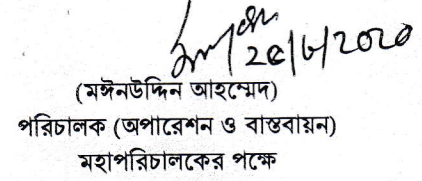 ২৫/৬/২০২০
(মঈনউদ্দিন আহম্মেদ)
পরিচালক (অপারেশন ও বাস্তবায়ন)
মহাপরিচালকের পক্ষে